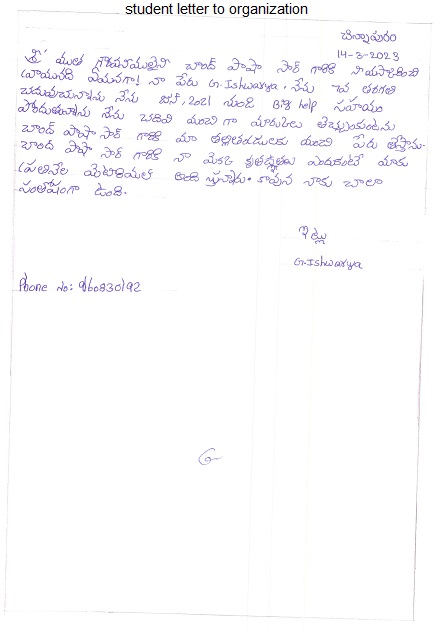 student letter to organization
చిన్నాపురం
14-3-2023
శ్రీ మతి గౌరవనీయులైన చాంద్ పాషా సార్ గారికి నమస్కరించి
వ్రాయునది ఏమనగా! నా పేరు G.Ishwarya, నేను వ తరగతి
చదువుచున్నాను నేను జూన్,2021 నుండి Big help సహాయం
పొందుతున్నాను నేను చదివి మంచి గా మార్కులు తెచ్చుకుంటును
చాంద్ పాషా సార్ గారికి మా తల్లితండ్రులకు మంచి పేరు తెస్తాను.
చాంద్ పాషా సార్ గారికి నా కృతజ్ఞతలు ఎందుకంటే మాకు
ప్రతినెల మెటీరియల్ అంది స్తున్నారు. కావున నాకు చాలా
సంతోషంగా ఉంది.
ఇట్లు
G.Ishwarya
Phone No: 9160830192